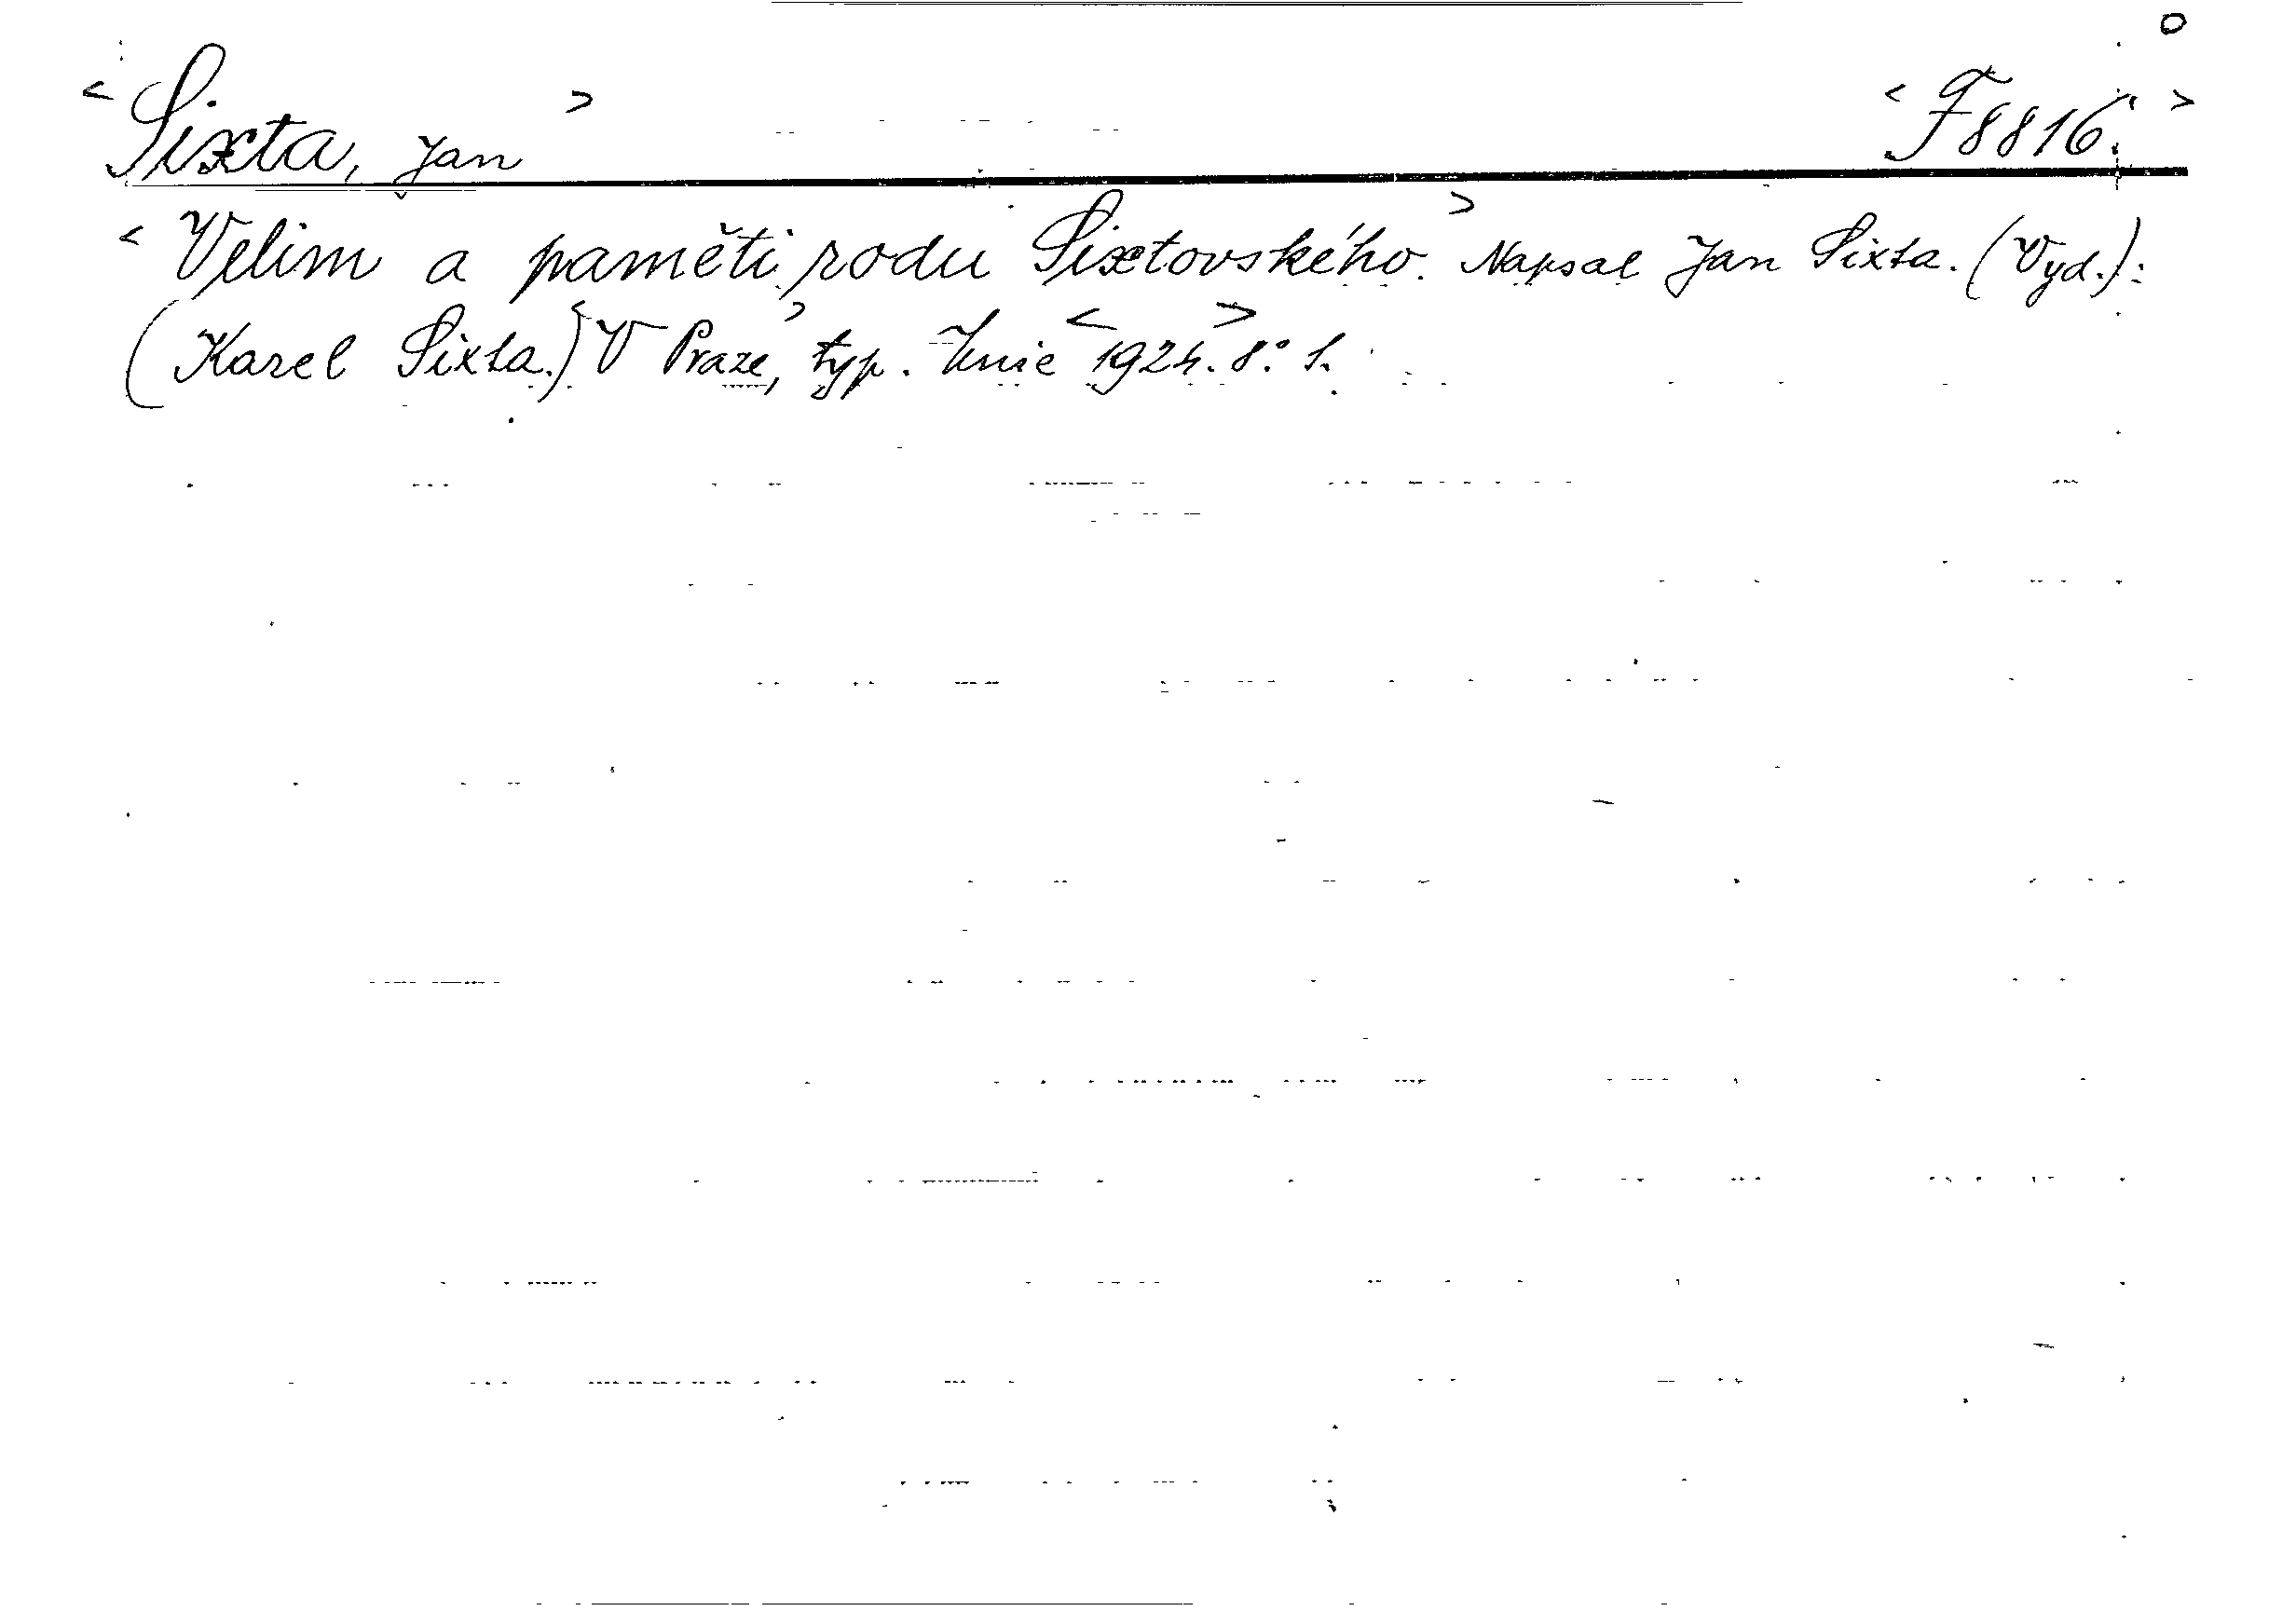 o
<Sixta, Jan> <F8816.>
<Velim a paměti rodu Sixtovského.> Napsal Jan Sixta. (Vyd.):
(Karel Sixta.) <V Praze,> typ. Unie <1924.> 8.° 1.